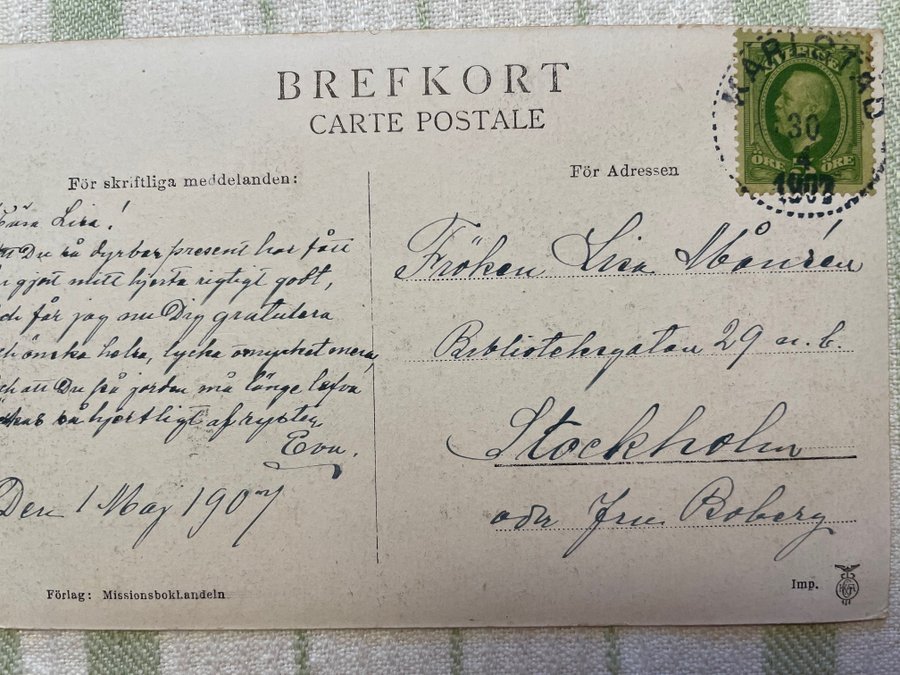 BREFKORT
CARTE POSTALE
För skriftliga meddelanden:
Lisa!
Du så dyrbar present har fått
gjort mitt hjerta rigtigt godt,
får jag nu Dig gratulera
önska helsa, lycka mycket mera,
att Du på jorden må länge lefva
så hjertligt af syster
Eva.
Den 1 Maj 1907
Förlag: Missionsbokhandeln
För Adressen
Fröken Lisa
Biblioteksgatan 29 n. b.
Stockholm
adr Fru Boberg
Imp.
SVERIGE
ÖRE ÖRE
KARLSTAD
30
4
1907